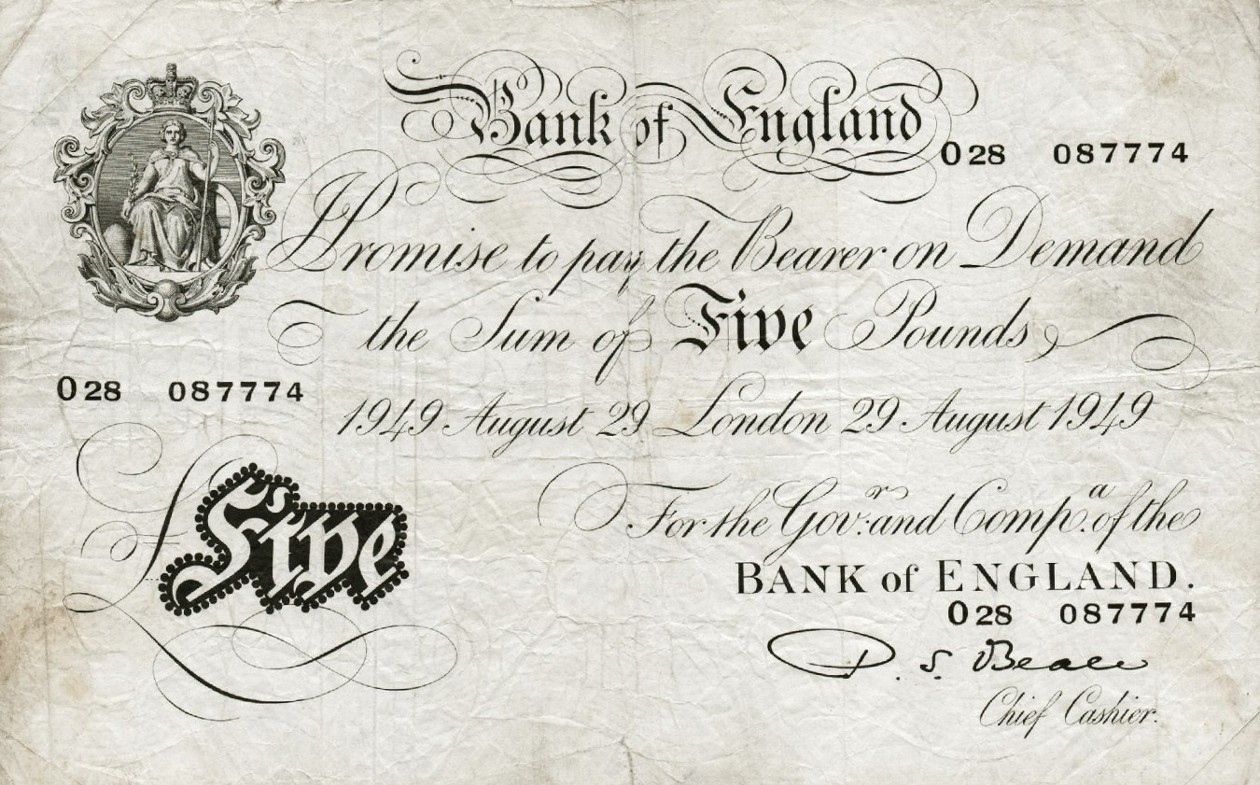 Bank of England
028 087774
I Promise to pay the Bearer on Demand
the Sum of Five Pounds
028 087774
1949 August 29 London 29 August 1949
For the Gov.r and Comp.a of the
£Five
BANK of ENGLAND.
028 087774
P. S. Beale
Chief Cashier.